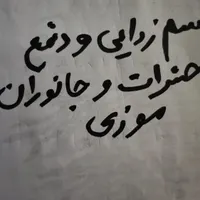 سم زدایی و دفع
حشرات و جانوران
موزی